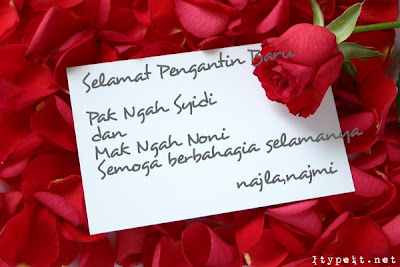 Selamat Pengantin Baru
Pak Ngah Syidi
dan
Mak Ngah Noni
Semoga berbahagia selamanya
najla,najmi
Itypeit.net